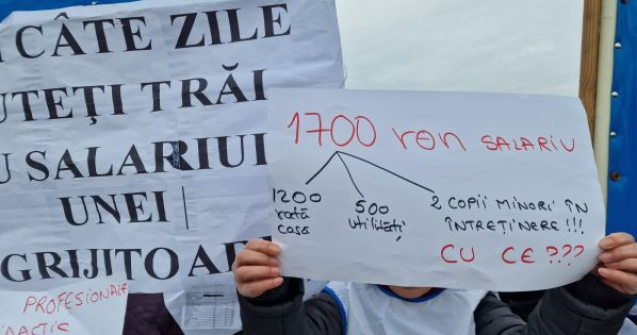 CÂTE ZILE
PUTEȚI TRĂI
CU SALARIUL
UNEI
PROFESIONALE
1700 ron SALARIU
1200
rată
casă
500
utilități
2 COPII MINORI ÎN
ÎNTREȚINERE !!!
CU CE ???